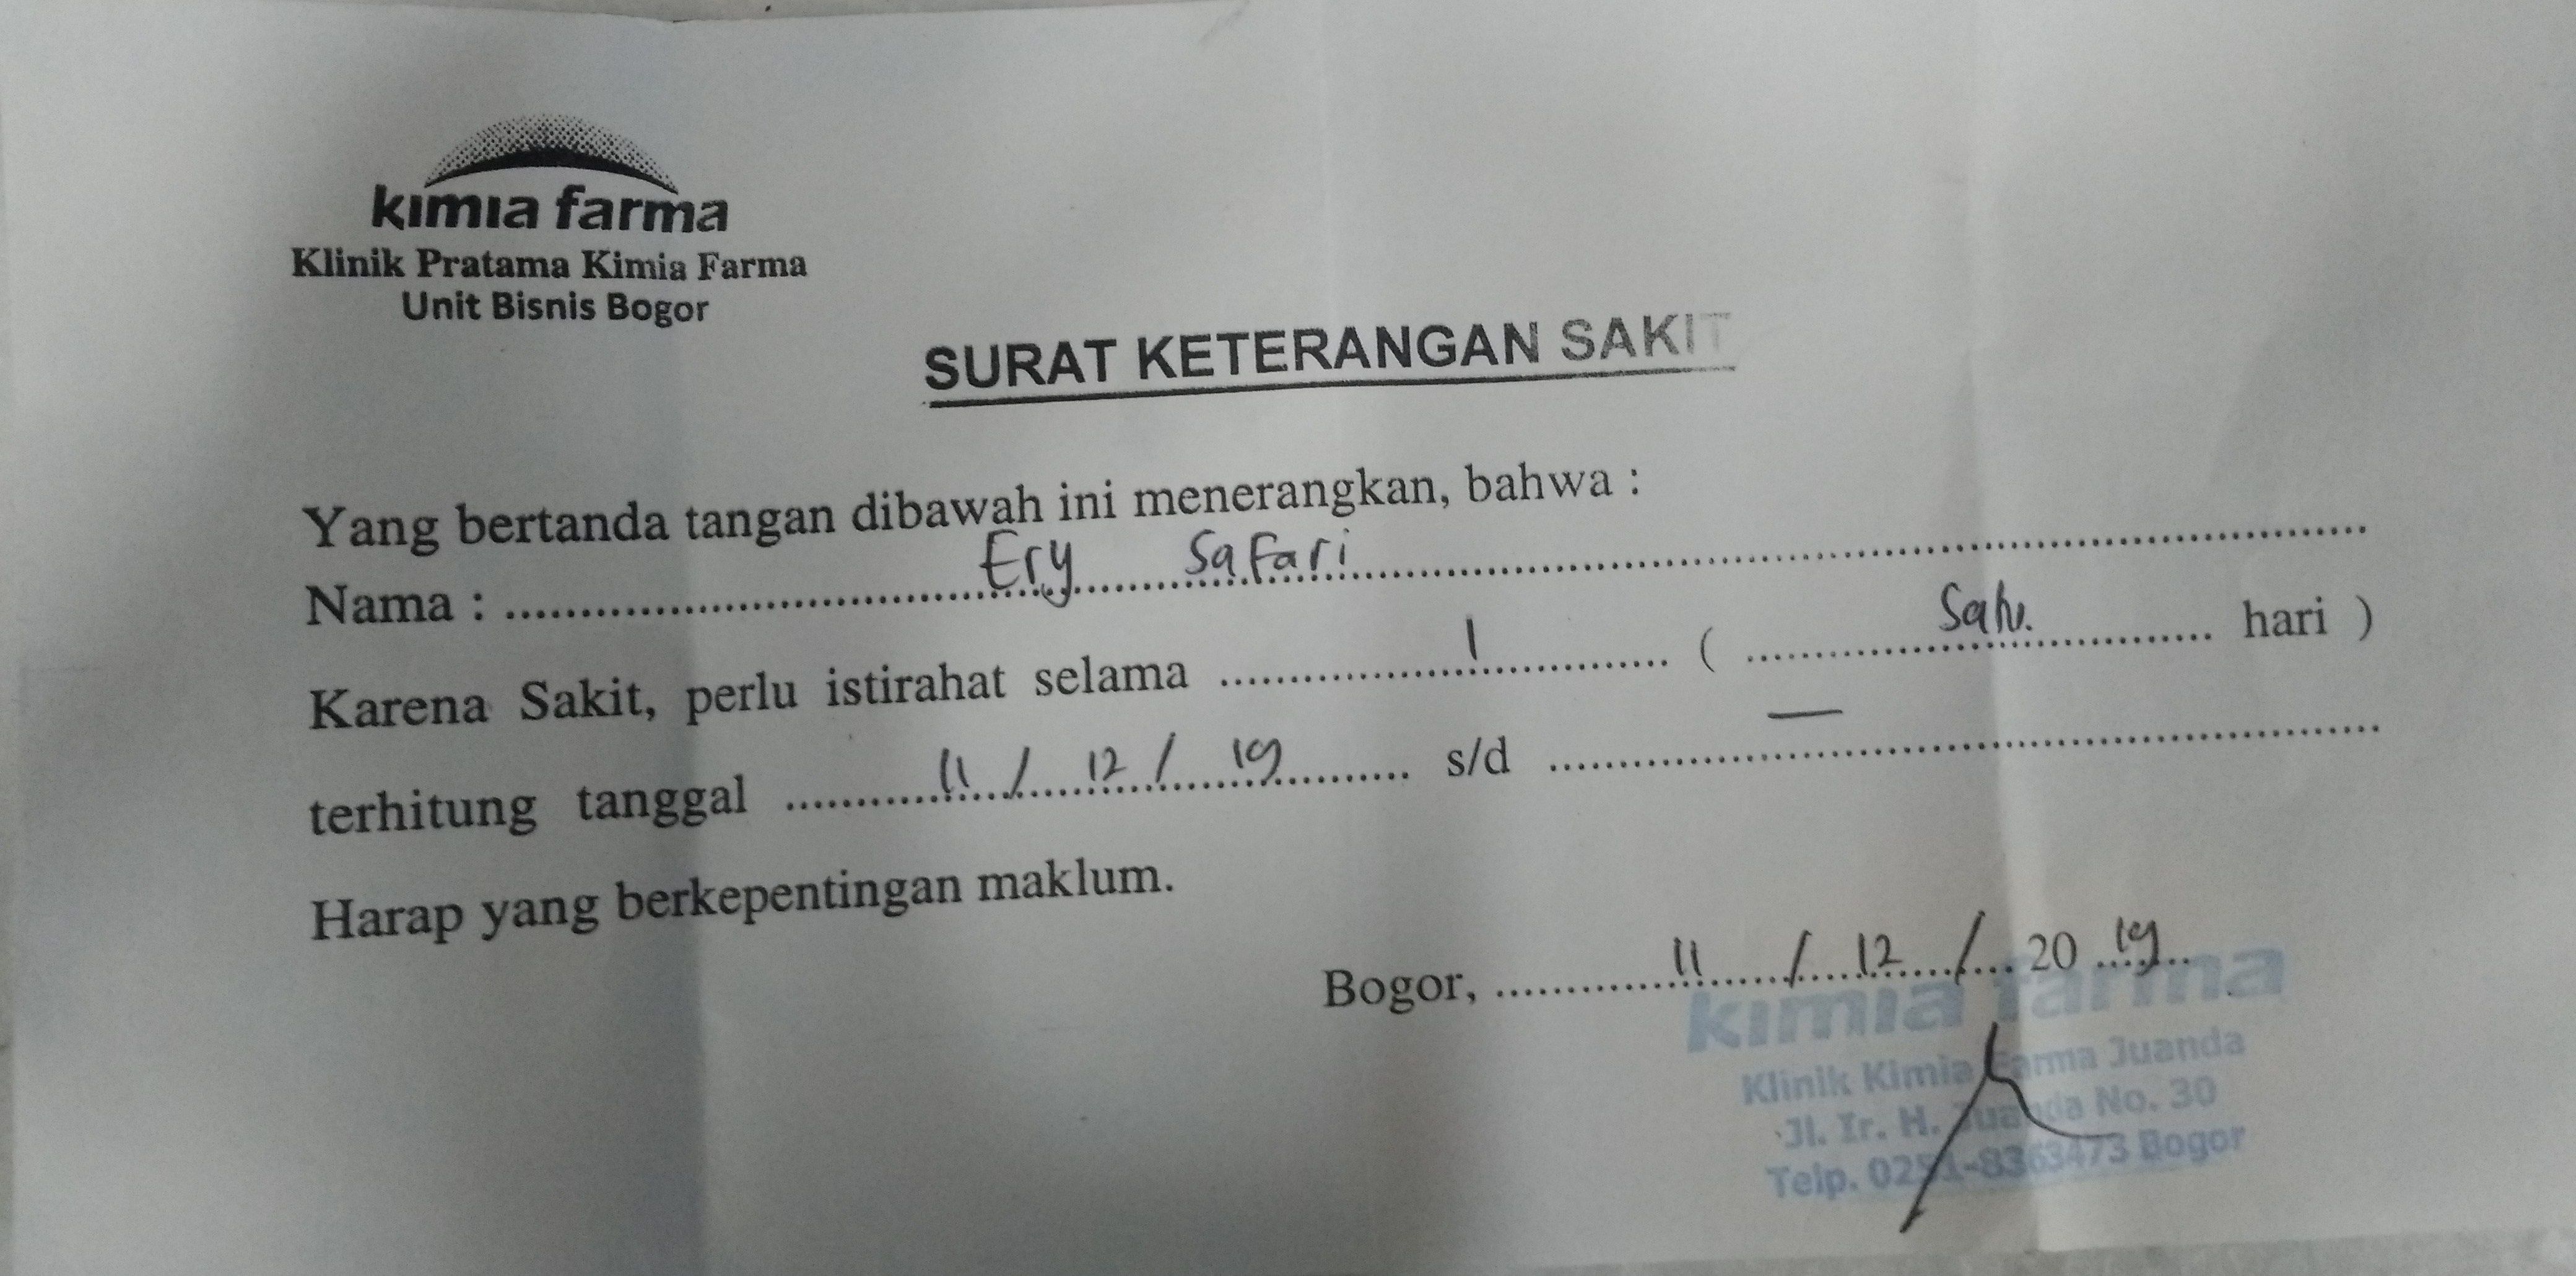 kimia farma
Klinik Pratama Kimia Farma
Unit Bisnis Bogor
SURAT KETERANGAN SAKIT
Yang bertanda tangan dibawah ini menerangkan, bahwa :
Nama : Ery Safari
Karena Sakit, perlu istirahat selama 1 ( Satu. hari )
terhitung tanggal 11 / 12 / 19 s/d —
Harap yang berkepentingan maklum.
Bogor, 11 / 12 / 20 19
kimia farma
Klinik Kimia Farma Juanda
Jl. Ir. H. Juanda No. 30
Telp. 0251-8363473 Bogor